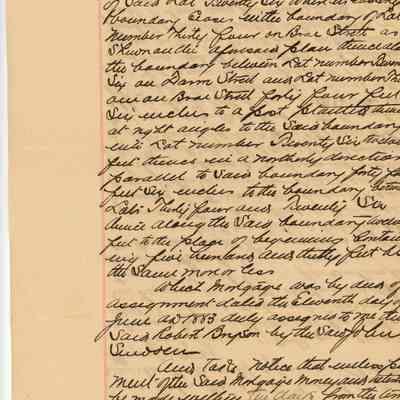 of Said Lot Twenty Six where its
boundary Crosses with the boundary of Lot
Number Thirty four on Brae Street as
Shewn on the aforesaid plan thence along
the boundary between Lot number Twenty
Six on Dann Street and Lot number Thirty
four on Brae Street forty four feet
Six inches to a post planted thence
at right angles to the Said boundary
into Lot Number Twenty Six twelve
feet thence in a northerly direction
parallel to Said boundary forty four
feet Six inches to the boundary between
Lots Thirty four and Twenty Six
thence along the Said boundary twelve
feet to the place of beginning Contain
ing five hundred and thirty feet be
the Same more or less
Which Mortgage was by deed of
assignment dated the Eleventh day of
June AD 1883 duly assigned to me the
Said Robert Bryson by the Said John
And Take notice that unless pay
ment of the Said Mortgage Money and interest
be made within ten days from the